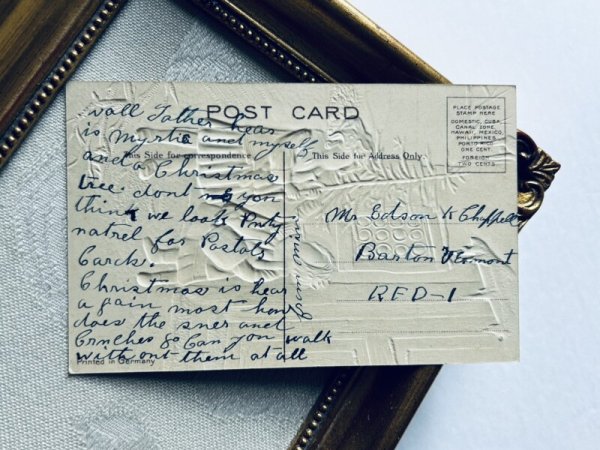 POST CARD
This Side for correspondence
This Side for Address Only.
PLACE POSTAGE
STAMP HERE
DOMESTIC, CUBA,
CANAL ZONE,
HAWAII, MEXICO,
PHILIPPINES
PORTO RICO
ONE CENT.
FOREIGN
TWO CENTS
wall Father hear
is myrtie and myself
and a Christmas
tree dont you
think we look Prity
natrel for Postals
Carck.
Christmas is hear
a gain most how
does the sner and
Crnches go Can you walk
with out them at all
from mina
Mr Edson K Chappell
Barton Vermont
RFD-1
Printed in Germany